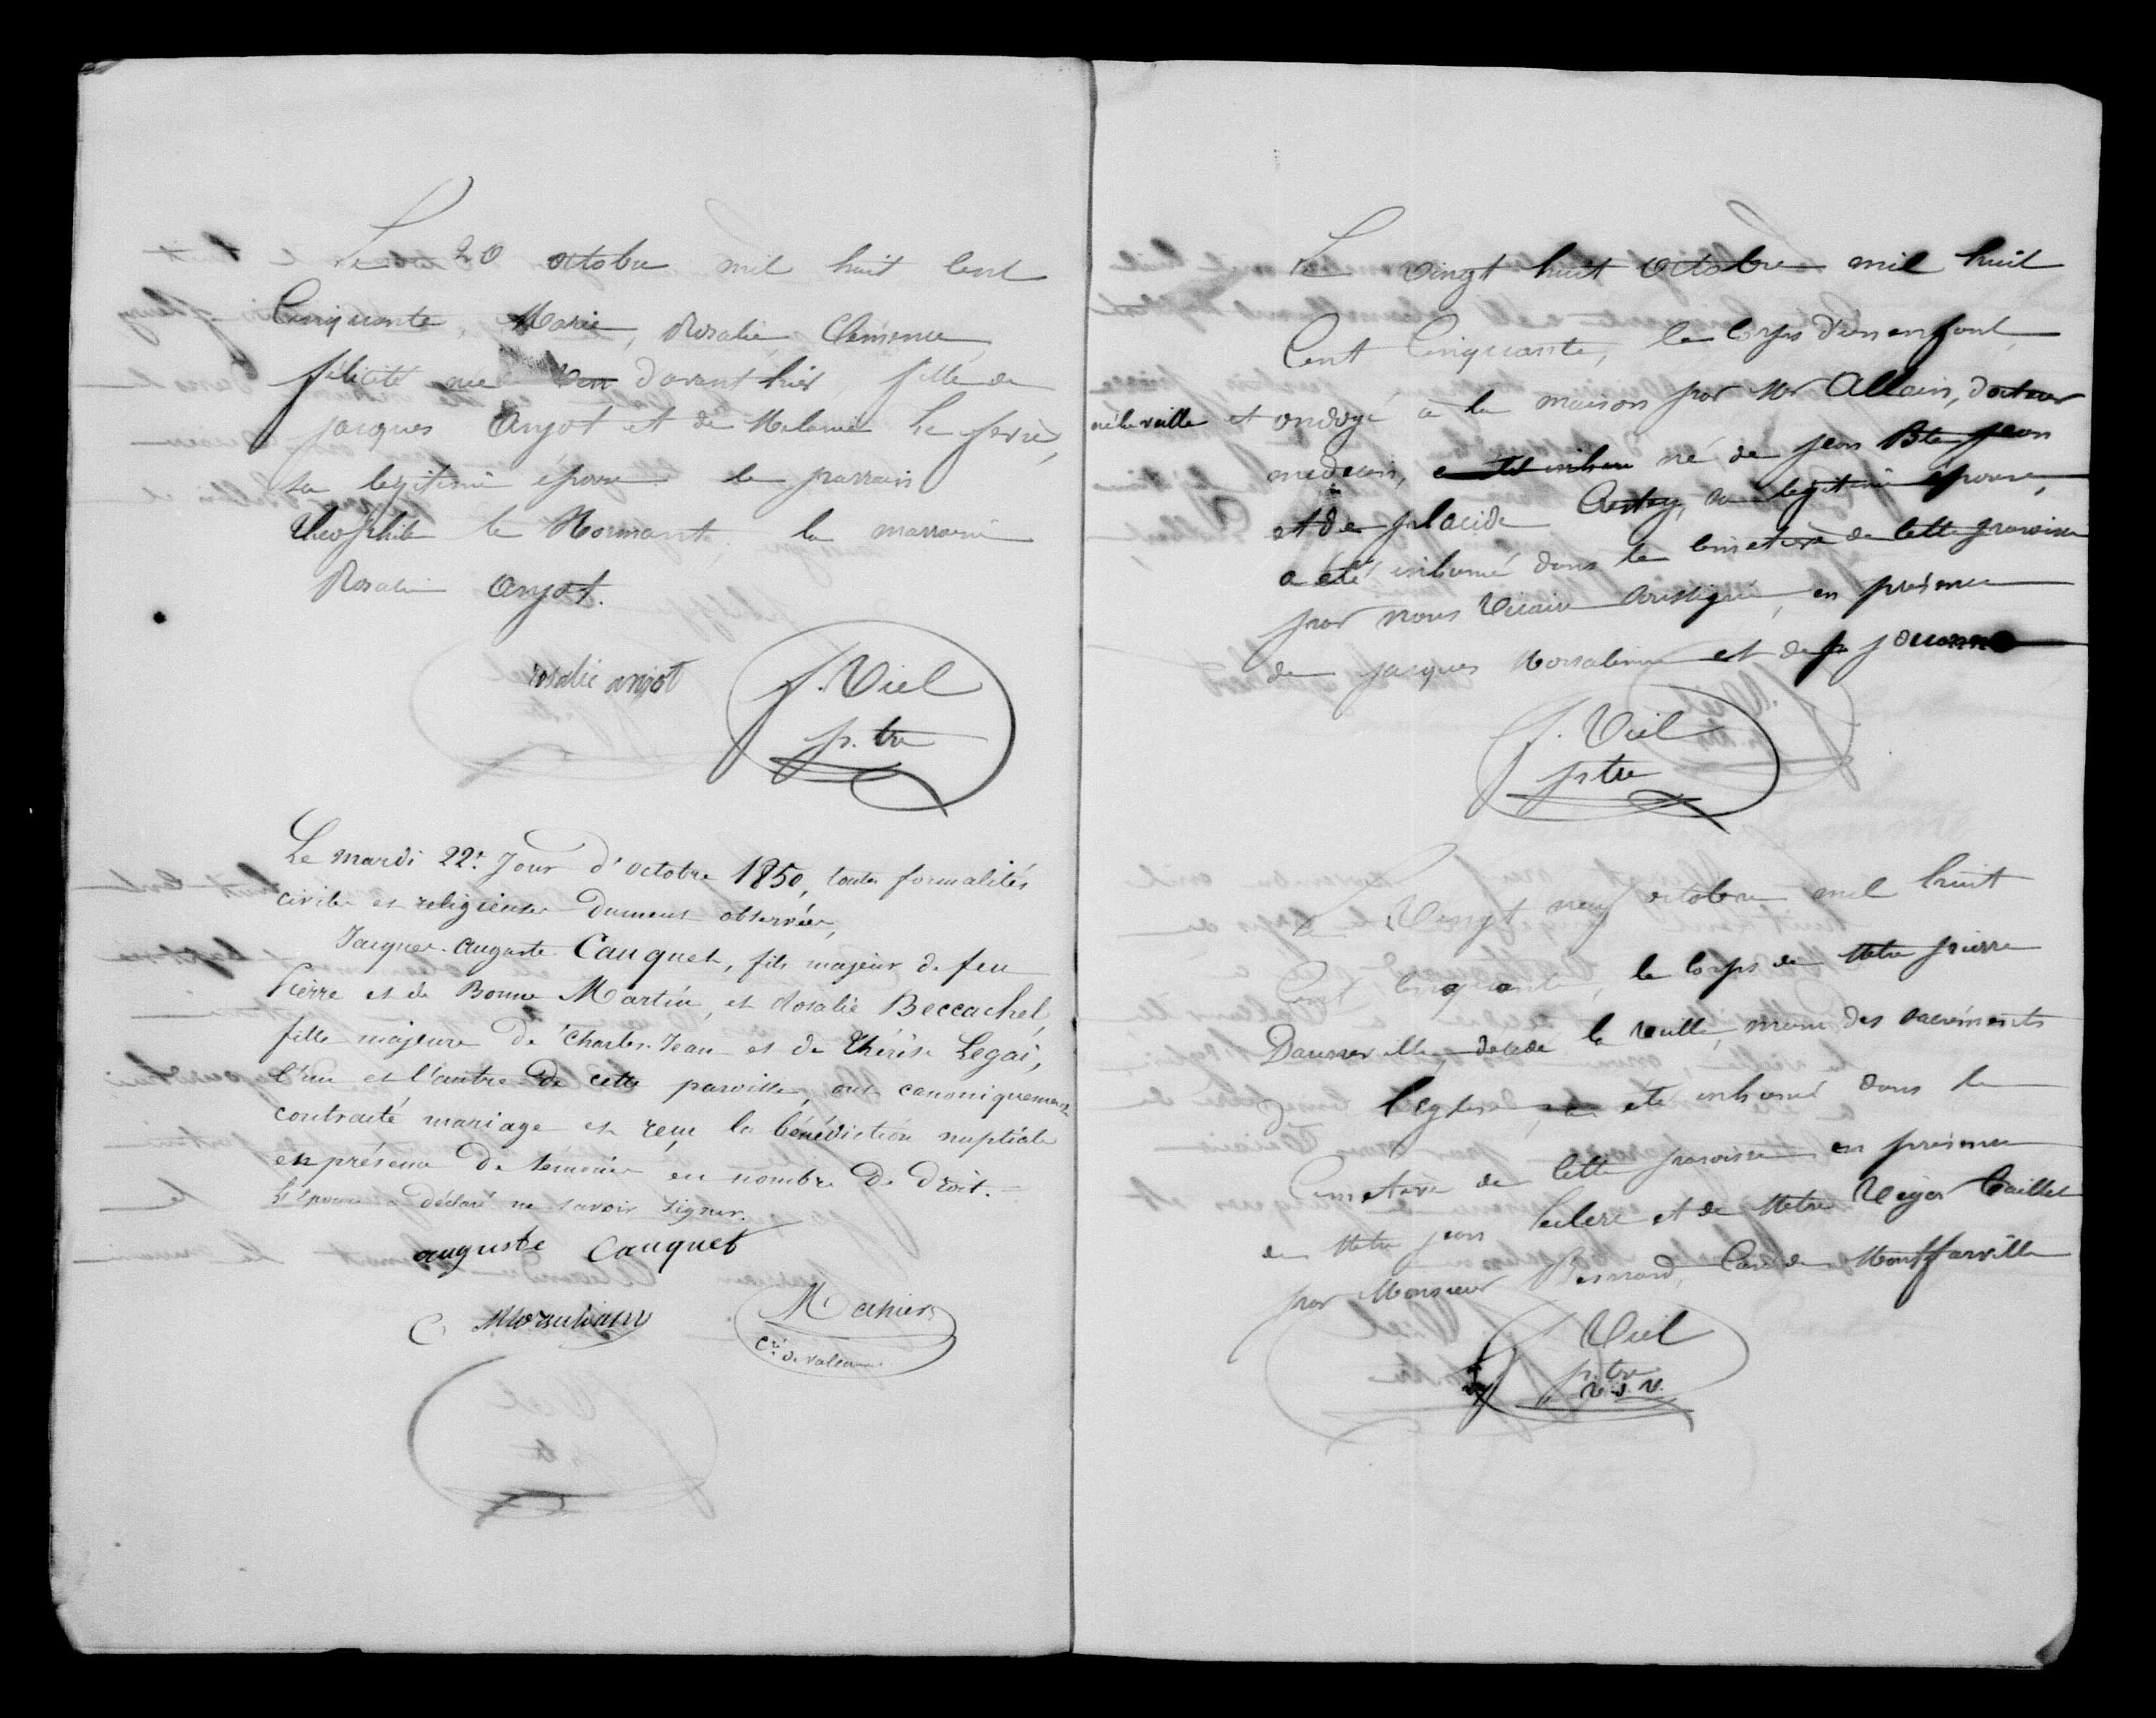 Le 20 octobre mil huit Cent
Cinquante, Marie, Rosalie Clémence
félicité née davant hier fille de
jacques Anjot et de Melanie Le fevre,
sa legitime épouse le parrain
theophile le Normant, la marraine
Rosalie Anjot.
rosalie anjot
J. Viel
p. tre
Le mardi 22e. Jour d'octobre 1850, toutes formalités
civiles et religieuses dument observées,
Jacques-Auguste Cauquet, fils majeur de feu
Pierre et de Bonne Martin, et Rosalie Beccachel,
fille majeure de Charles-Jean et de Thérèse Legai,
l'un et l'autre de cette paroisse, ont canoniquement
contracté mariage et reçu la bénédiction nuptiale
en présence de témoins en nombre de droit.
L'épouse a déclaré ne savoir signer.
auguste Cauquet
Mahieu
Le vingt huit Octobre mil huit
Cent Cinquante, le Corps d'un enfant,
né la veille et ondoyé à la maison par Mr Allain, docteur
medecin, né de jean Bte jean
et de placide sa legitime épouse,
a été inhumé dans le cimetière de cette paroisse
par nous Vicaire soussigné, en présence
de jacques Morsaline et de
J. Viel
ptre
Le Vingt neuf octobre mil huit
Cent Cinquante, le Corps de Mtre pierre
Dannerville, décédé la veille, muni des sacrements
de l'eglise, a été inhumé dans le
Cimetière de Cette paroisse en présence
de Mtre jean leclerc et de Mtre Caillet
par Monsieur Besnard, Curé de Montfarville
J. Viel
p. tre
v. d. V.